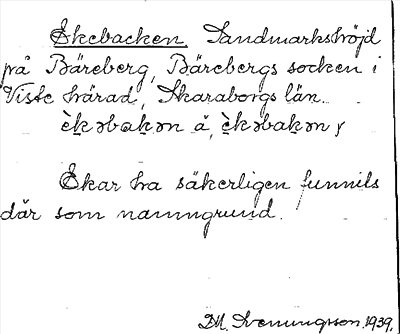 Ekebacken. Sandmarkshöjd
på Bäreberg, Bärebergs socken i
Viste härad, Skaraborgs län.
Ekar ha säkerligen funnits
där som namngrund.
M. Svenungsson 1939.